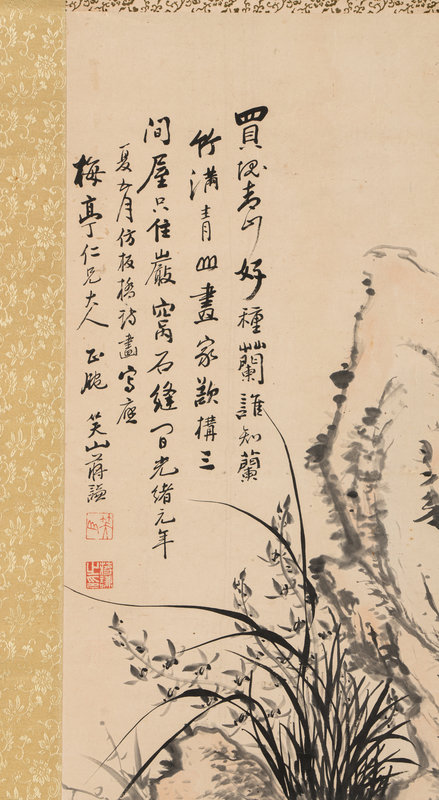 買塊青山好種蘭誰知蘭
竹満青山畫家欲構三
间屋只住巖窩石縫间光緒元年
夏五月仿板橋詩畫寫應
梅亭仁兄大人 正腕 笑山蔣謐
笑山